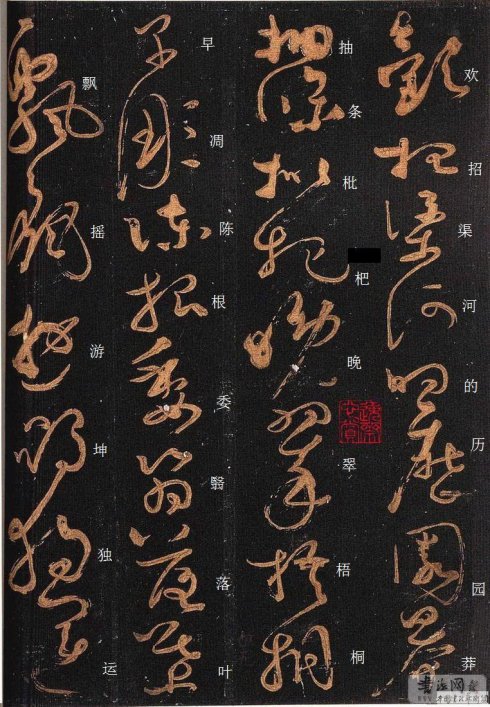 欢招渠河的历园莽
抽条枇杷晚翠梧桐
早凋陈根委翳落叶
飘摇游坤独运
书法网